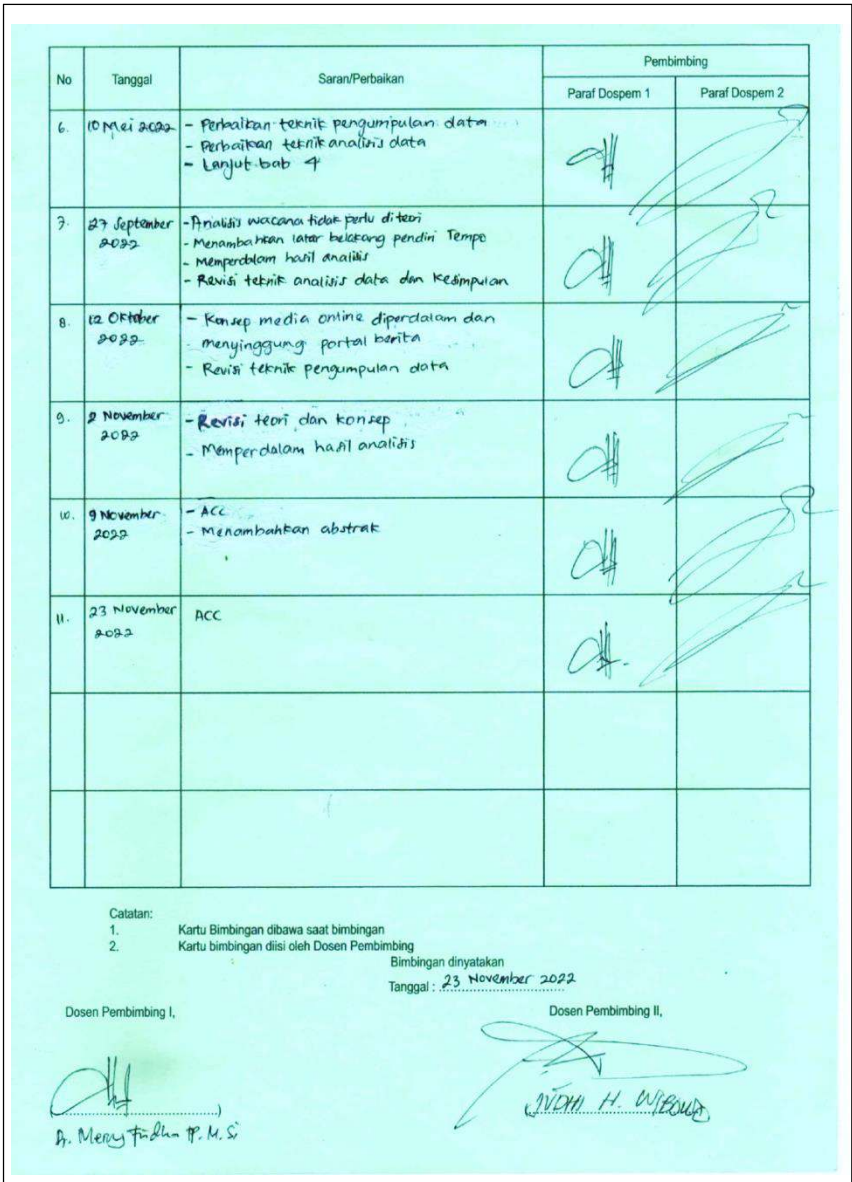 No Tanggal Saran/Perbaikan Pembimbing
Paraf Dospem 1 Paraf Dospem 2
6. 10 Mei 2022 - Perbaikan teknik pengumpulan data
- Perbaikan teknik analisis data
- Lanjut bab 4
7. 27 September 2022 - Analisis wacana tidak perlu di teori
- Menambahkan latar belakang pendiri Tempo
- Memperdalam hasil analisis
- Revisi teknik analisis data dan Kesimpulan
8. 12 Oktober 2022 - Konsep media online diperdalam dan
menyinggung portal berita
- Revisi teknik pengumpulan data
9. 2 November 2022 - Revisi teori dan konsep
- Memperdalam hasil analisis
10. 9 November 2022 - ACC
- Menambahkan abstrak
11. 23 November 2022 ACC
Catatan:
1. Kartu Bimbingan dibawa saat bimbingan
2. Kartu bimbingan diisi oleh Dosen Pembimbing
Bimbingan dinyatakan
Tanggal : 23 November 2022
Dosen Pembimbing I, Dosen Pembimbing II,
(JUDHI H. WIBOWO)
Merry P. M. Si